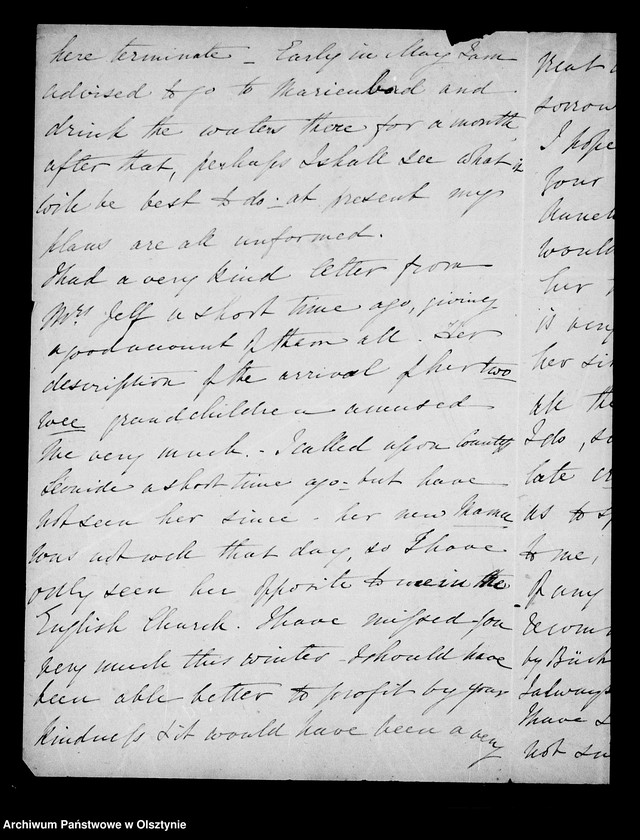 here terminate – Early in May I am
advised to go to Marienbad and
drink the waters there for a month,
after that, perhaps I shall see what it
will be best to do – at present my
plans are all unformed.
I had a very kind letter from
Mrs Jelf a short time ago, giving
a good account of them all. Her
description of the arrival of her two
wee grandchildren amused
me very much. – I called upon Countess
Leonide a short time ago – but have
not seen her since – her new Mama
was not well that day, so I have
only seen her opposite to me in the
English Church. I have missed you
very much this winter – I should have
been able better to profit by your
kindness & it would have been a very
great
sorrow
I hope
your
would
her
is very
her sis
all the
I do, so
late
as to s
to me,
of any
by Büch
I always
I have s
not su
Archiwum Państwowe w Olsztynie